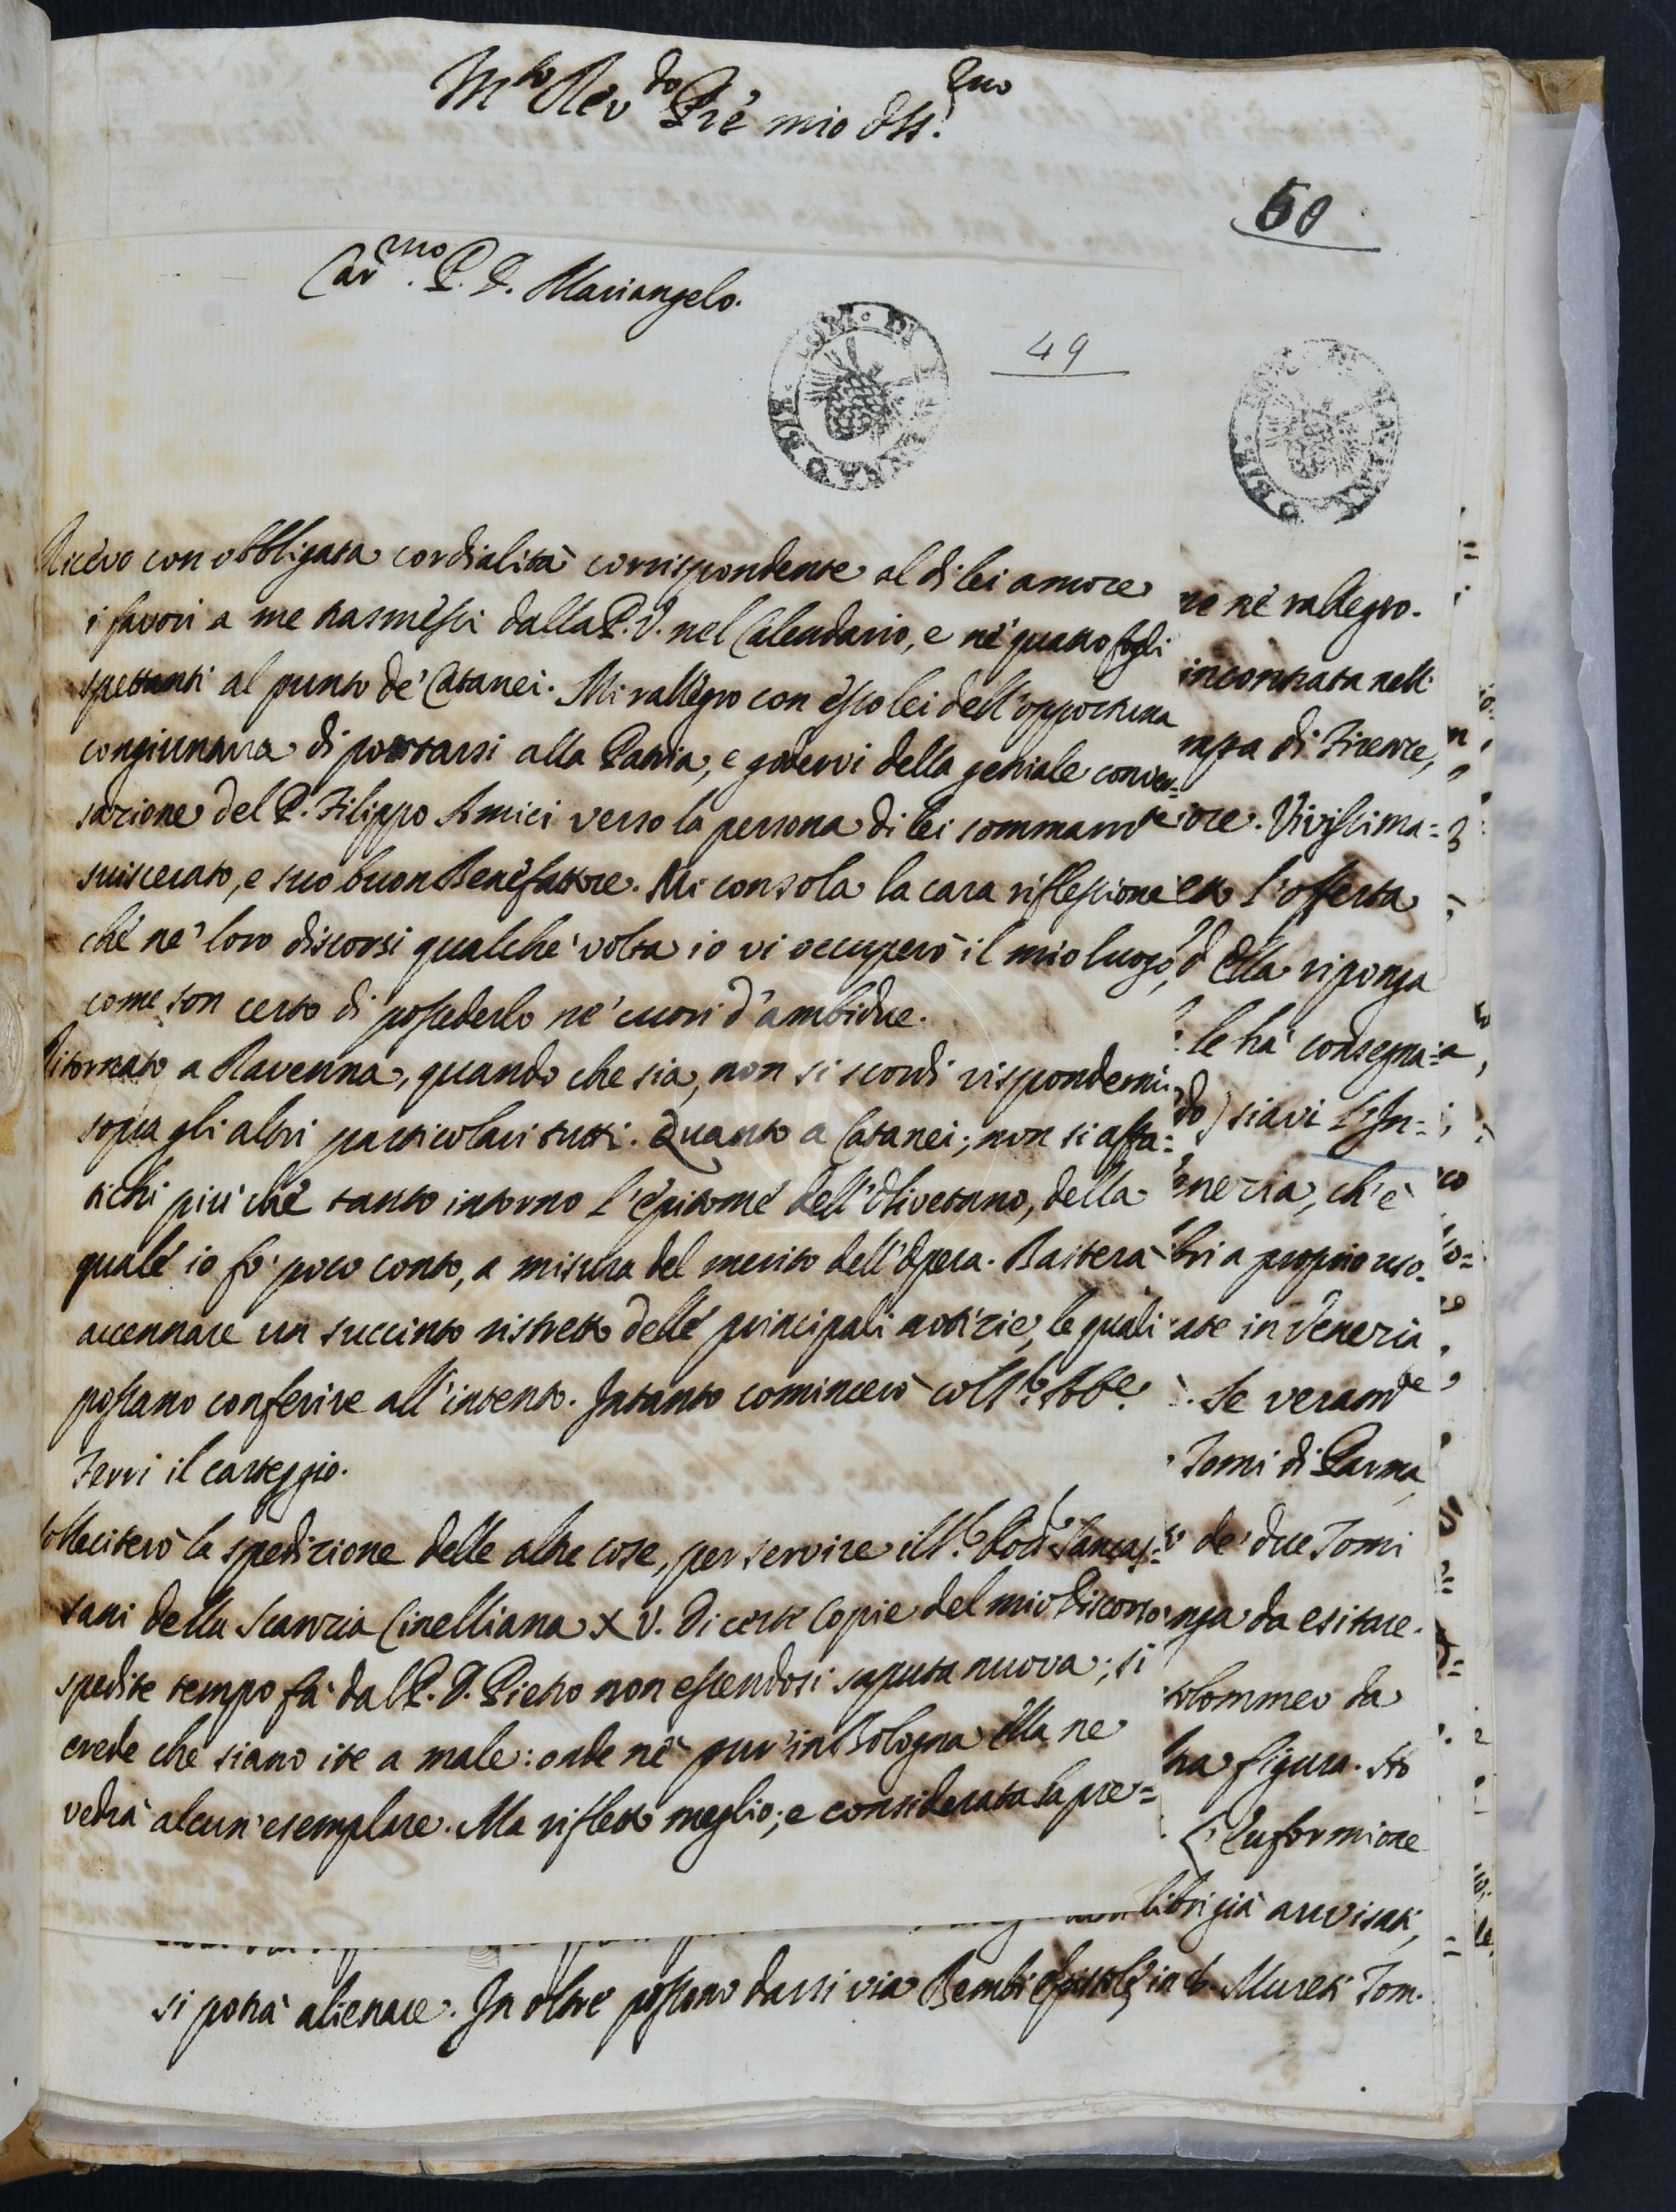 Mto Revdo Prē mio Oss.mo
50
Carmo. P. D. Mariangelo.
49
Ricevo con obbligata cordialità corrispondente al di lei amore
i favori a me trasmessi dalla P. V. nel Calendario, e ne' quattro fogli
spettanti al punto de' Catanei. Mi rallegro con esso lei dell'opportuna
congiuntura di portarsi alla Patria, e godervi della geniale conver=
sazione del P. Filippo Amici verso la persona di lei sommamte
sviscerato, e suo buon Benefattore. Mi consola la cara riflessione
che ne' loro discorsi qualche volta io vi occuperò il mio luogo,
come son certo di possederlo ne' cuori d'ambidue.
Ritornato a Ravenna, quando che sia, non si scordi rispondermi
sopra gli altri particolari tutti. Quanto a Catanei; non si affa=
tichi più che tanto intorno l'Epitome dell'Olivetano, della
quale io fo poco conto, a misura del merito dell'Opera. Basterà
accennare un succinto ristretto delle principali notizie, le quali
possano conferire all'intento. Intanto comincerò col Sr. Abbe.
Ferri il carteggio.
Solleciterò la spedizione delle altre cose, per servire il Sr. Dotr Sancas=
sani della Scanzia Cinelliana XV. Di certe Copie del mio Discorso
spedite tempo fà dal P. D. Pietro non essendosi saputa nuova; si
crede che siano ite a male: onde nè pur in Bologna Ella ne
vedrà alcun' esemplare. Ma rifletto meglio; e considerata la pre=
ro ne rallegro.
incontrata nell'
mpa di Firenze,
ore. Vivissima=
l'offerta
Ella riponga
le hà consegna=
do) siavi l'In=
enezia, ch'è
bri a proprio uso.
ate in Venezia
. Se veramte
Tomi di Parma
de' due Tomi
nga da esitare.
tolommeo da
tra figura. Ho
l'Euformione
libri già avvisati,
si potrà alienare. In oltre possono darsi via Bembi Epistolę in 8. Mureti Tom.